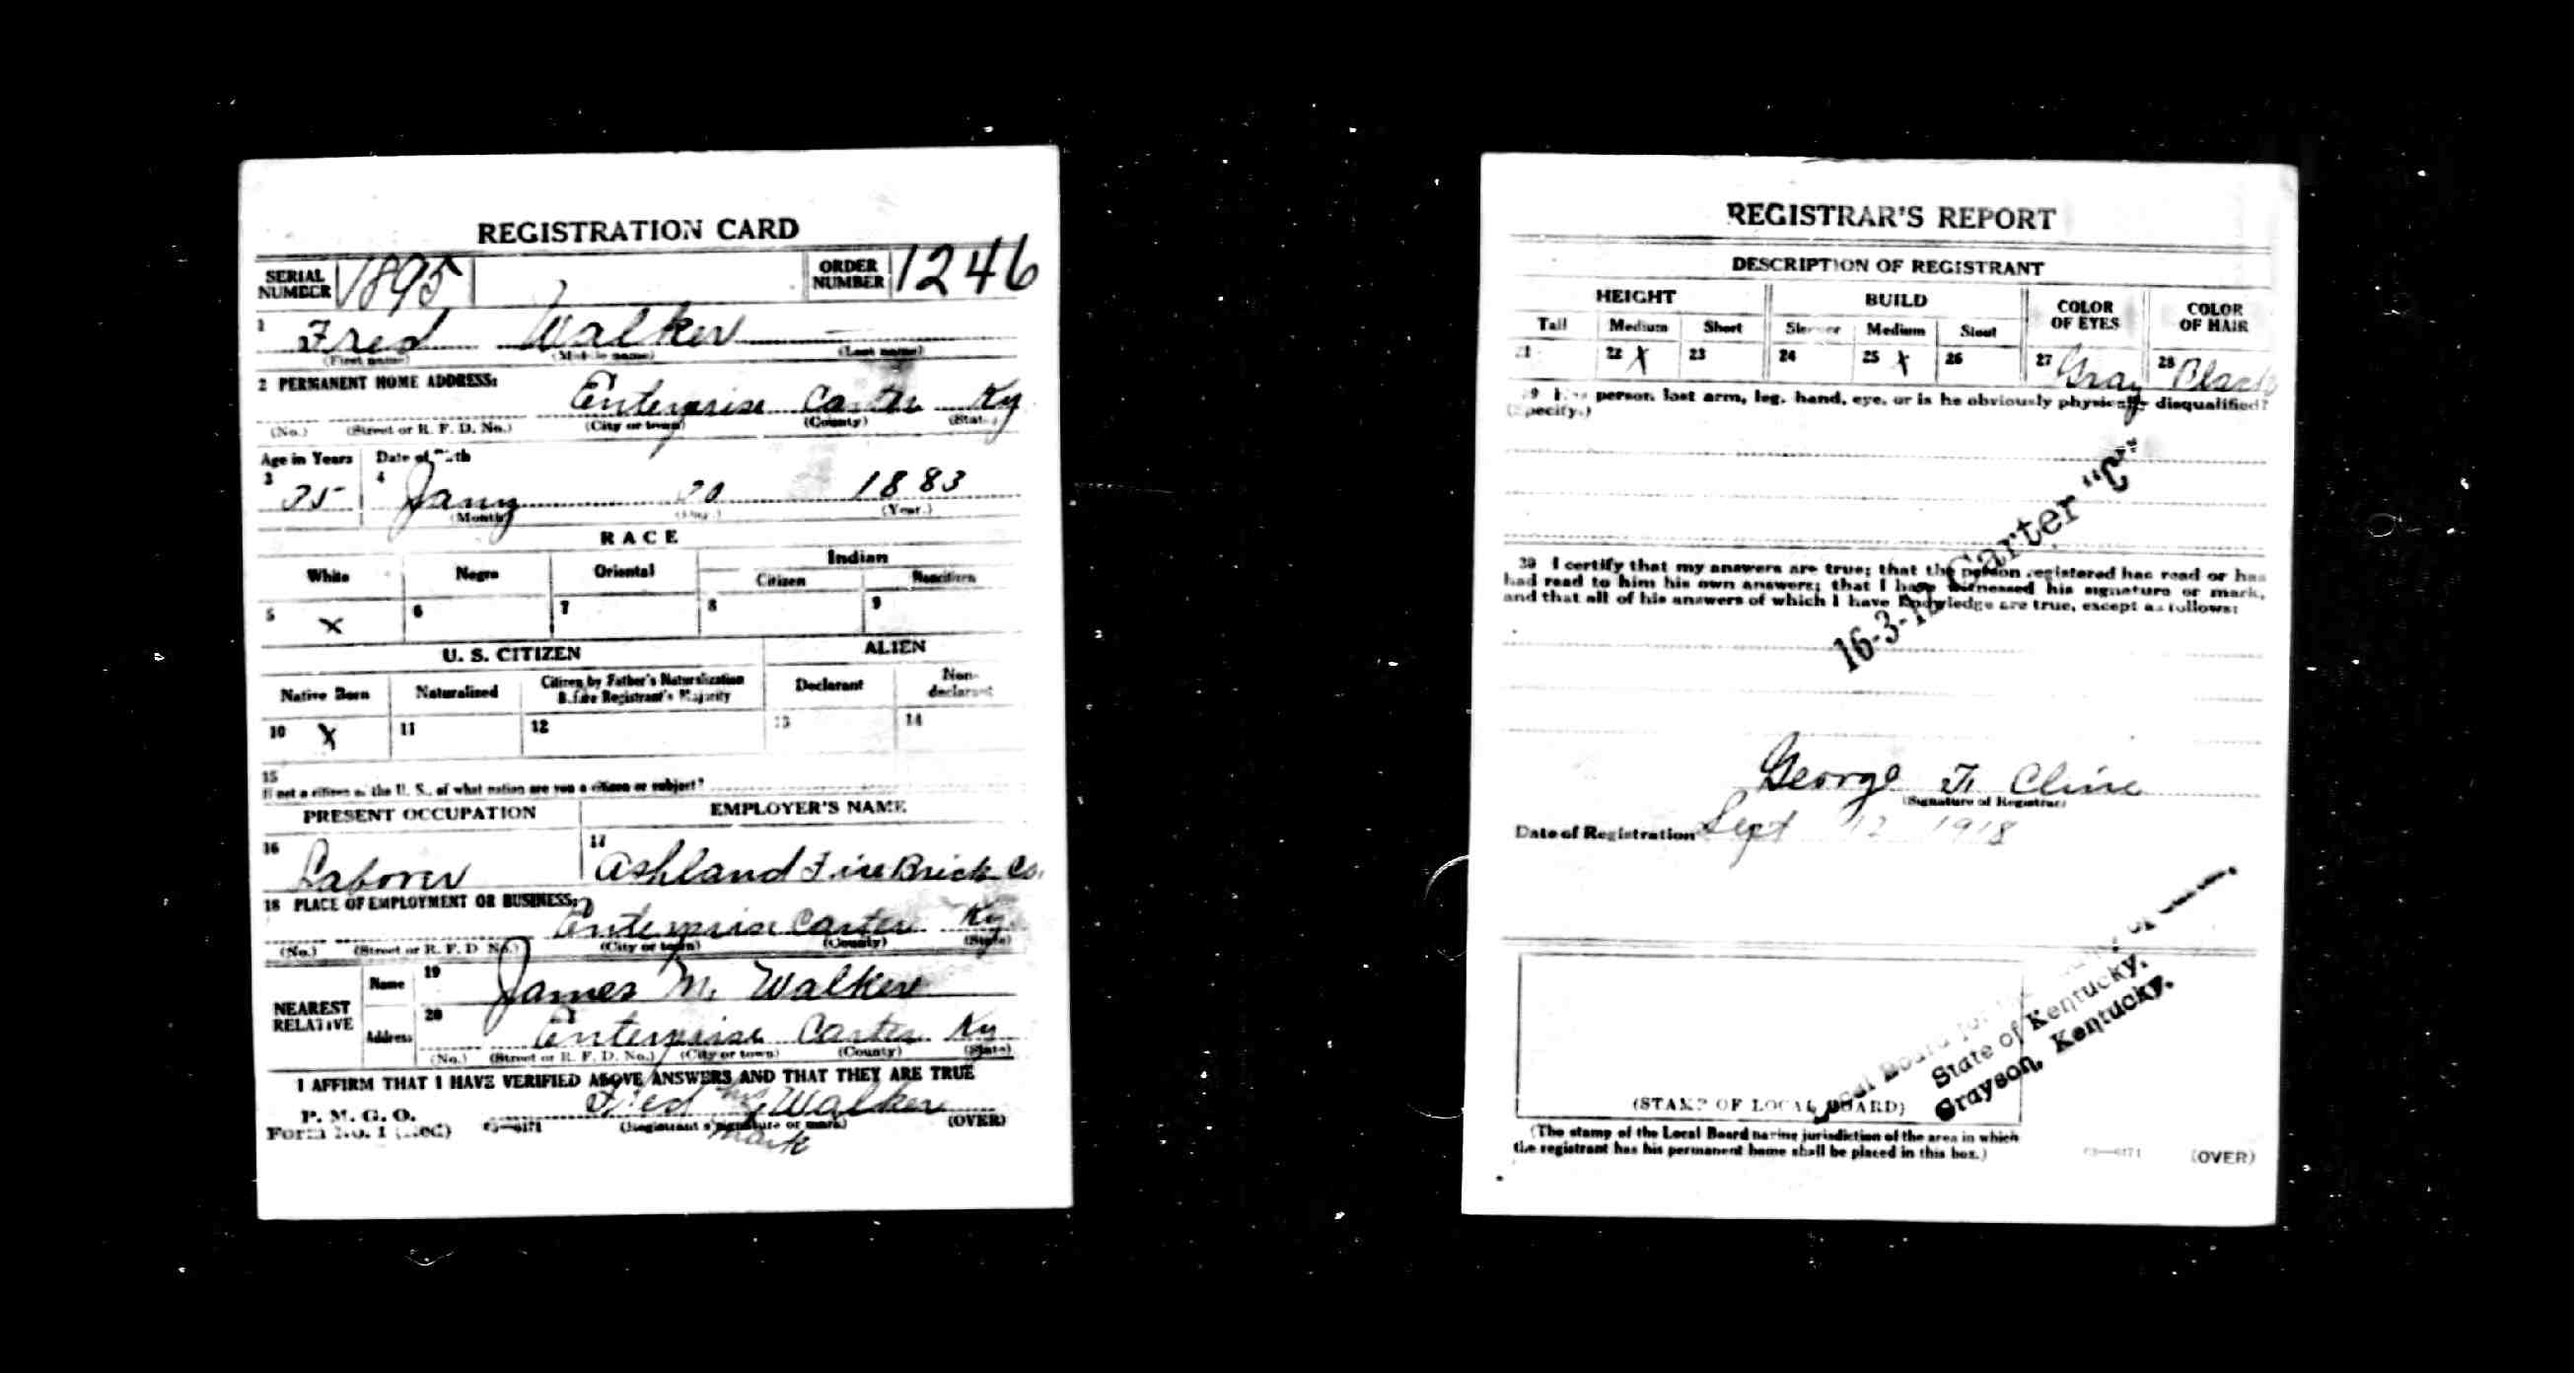 REGISTRATION CARD
SERIAL NUMBER 1895 ORDER NUMBER 1246
1 Fred Walker —
(First name) (Middle name) (Last name)
2 PERMANENT HOME ADDRESS:
Enterprise Carter Ky
(No.) (Street or R. F. D. No.) (City or town) (County) (State)
Age in Years Date of Birth
3 35 4 Jany 20 1883
(Month) (Day.) (Year.)
RACE
White Negro Oriental Indian
Citizen Noncitizen
5 X 6 7 8 9
U. S. CITIZEN ALIEN
Native Born Naturalized Citizen by Father's Naturalization Before Registrant's Majority Declarant Non-declarant
10 X 11 12 13 14
15
If not a citizen of the U. S., of what nation are you a citizen or subject?
PRESENT OCCUPATION EMPLOYER'S NAME
16 Laborer 17 Ashland Fire Brick Co.
18 PLACE OF EMPLOYMENT OR BUSINESS:
Enterprise Carter Ky
(No.) (Street or R. F. D. No.) (City or town) (County) (State)
NEAREST RELATIVE
Name 19 James M. Walker
Address 20 Enterprise Carter Ky
(No.) (Street or R. F. D. No.) (City or town) (County) (State)
I AFFIRM THAT I HAVE VERIFIED ABOVE ANSWERS AND THAT THEY ARE TRUE
P. M. G. O.
Form No. 1 (Red) 03—6171 Fred his X Walker
(Registrant's signature or mark) (OVER)
mark
REGISTRAR'S REPORT
DESCRIPTION OF REGISTRANT
HEIGHT BUILD COLOR OF EYES COLOR OF HAIR
Tall Medium Short Slender Medium Stout
21 22 X 23 24 25 X 26 27 Gray 28 Black
29 Has person lost arm, leg, hand, eye, or is he obviously physically disqualified?
(Specify.)
16-3-12 Carter "C"
30 I certify that my answers are true; that the person registered has read or has
had read to him his own answers; that I have witnessed his signature or mark,
and that all of his answers of which I have knowledge are true, except as follows:
George F. Cline
(Signature of Registrar)
Date of Registration Sept 12 1918
Local Board for
State of Kentucky,
Grayson, Kentucky.
(STAMP OF LOCAL BOARD)
(The stamp of the Local Board having jurisdiction of the area in which
the registrant has his permanent home shall be placed in this box.)
03—6171 (OVER)